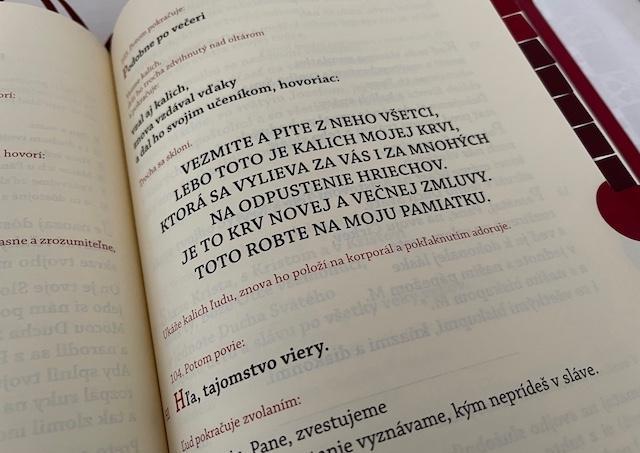 orí:
hovorí:
asne a zrozumiteľne,
103. Potom pokračuje:
Podobne po večeri
vezme kalich,
ho trocha zdvihnutý nad oltárom
pokračuje:
vzal aj kalich,
znova vzdával vďaky
a dal ho svojim učeníkom, hovoriac:
Trocha sa skloní.
VEZMITE A PITE Z NEHO VŠETCI,
LEBO TOTO JE KALICH MOJEJ KRVI,
KTORÁ SA VYLIEVA ZA VÁS I ZA MNOHÝCH
NA ODPUSTENIE HRIECHOV.
JE TO KRV NOVEJ A VEČNEJ ZMLUVY.
TOTO ROBTE NA MOJU PAMIATKU.
Ukáže kalich ľudu, znova ho položí na korporál a pokľaknutím adoruje.
104. Potom povie:
Hľa, tajomstvo viery.
Ľud pokračuje zvolaním:
Pane, zvestujeme
vyznávame, kým neprídeš v sláve.